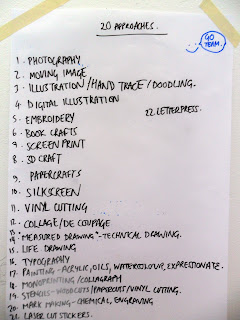 20 APPROACHES.
GO TEAM.
1. PHOTOGRAPHY
2. MOVING IMAGE
3. ILLUSTRATION/HAND TRACE/DOODLING.
4 DIGITAL ILLUSTRATION
22. LETTERPRESS.
5. EMBROIDERY
6. BOOK CRAFTS
7. SCREEN PRINT
8. 3D CRAFT
9. PAPERCRAFTS
10. SILKSCREEN
11. VINYL CUTTING
12. COLLAGE/DE COUPAGE
13 "MEASURED DRAWING"-TECHNICAL DRAWING.
15. LIFE DRAWING
16. TYPOGRAPHY
17. PAINTING-ACRYLIC, OILS, WATERCOLOUR, EXPRESSIONATE.
18. MONOPRINTING/COLLAGRAPH
19 STENCILS-WOODCUTS/PAPERCUTS/VINYL CUTTING.
20. MARK MAKING-CHEMICAL, ENGRAVING
21. LASER CUT STICKERS.